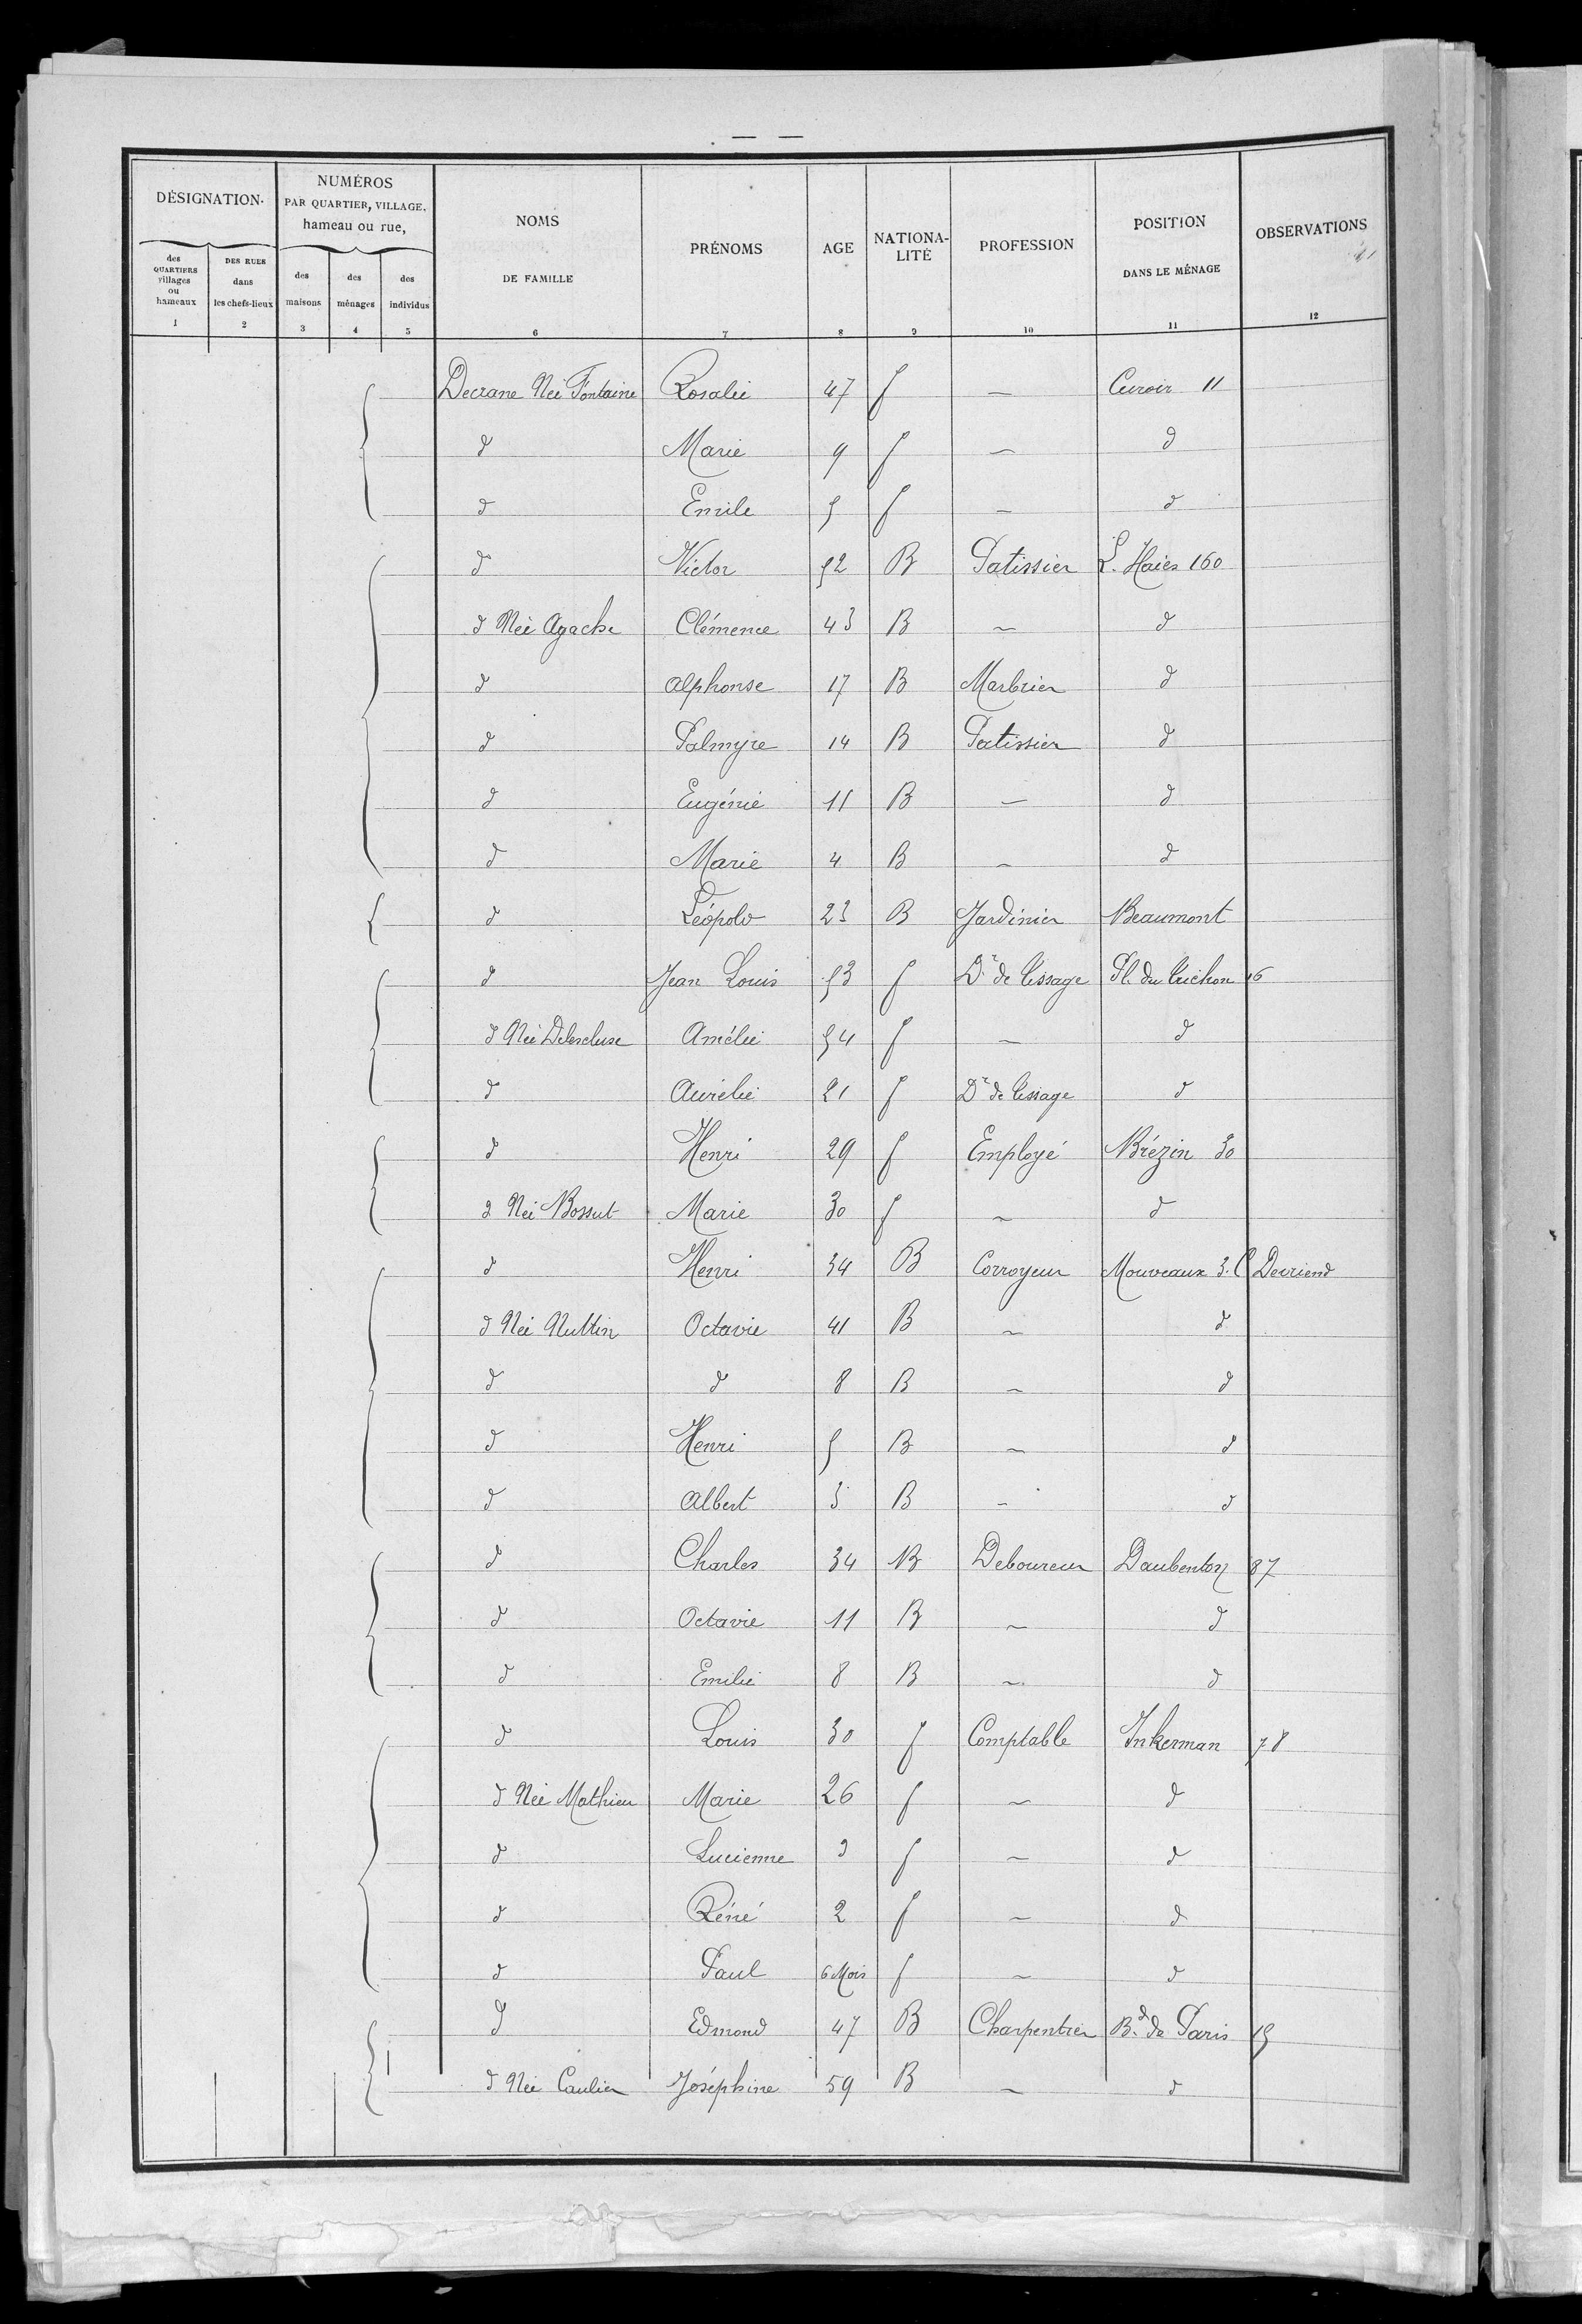 — —
DÉSIGNATION
NUMÉROS
PAR QUARTIER, VILLAGE,
hameau ou rue,
NOMS
DE FAMILLE
PRÉNOMS
AGE
NATIONA-
LITÉ
PROFESSION
POSITION
DANS LE MÉNAGE
OBSERVATIONS
des
QUARTIERS
villages
ou
hameaux
DES RUES
dans
les chefs-lieux
des
maisons
des
ménages
des
individus
1 2 3 4 5 6 7 8 9 10 11 12
Decrane Née Fontaine Rosalie 47 f — Curoir 11
d Marie 9 f — d
d Emile 5 f — d
d Victor 52 B Patissier L. Haies 160
d Née Agache Clémence 43 B — d
d Alphonse 17 B Marbrier d
d Palmyre 14 B Patissier d
d Eugénie 11 B — d
d Marie 4 B — d
d Léopold 23 B Jardinier Beaumont
d Jean Louis 53 f Dr de tissage Pl. du Trichon 16
d Née Delescluse Amélie 54 f — d
d Aurélie 21 f Dr de tissage d
d Henri 29 f Employé Brézin 30
d Née Bossut Marie 30 f — d
d Henri 34 B Corroyeur Mouveaux 3. C Devriend
d Née Nuttin Octavie 41 B — d
d d 8 B — d
d Henri 5 B — d
d Albert 3 B — d
d Charles 34 B Deboureur Daubenton 87
d Octavie 11 B — d
d Emilie 8 B — d
d Louis 30 f Comptable Inkerman 78
d Née Mathieu Marie 26 f — d
d Lucienne 3 f — d
d Réné 2 f — d
d Paul 6 Mois f — d
d Edmond 47 B Charpentier Bd de Paris 15
d Née Caulier Joséphine 59 B — d